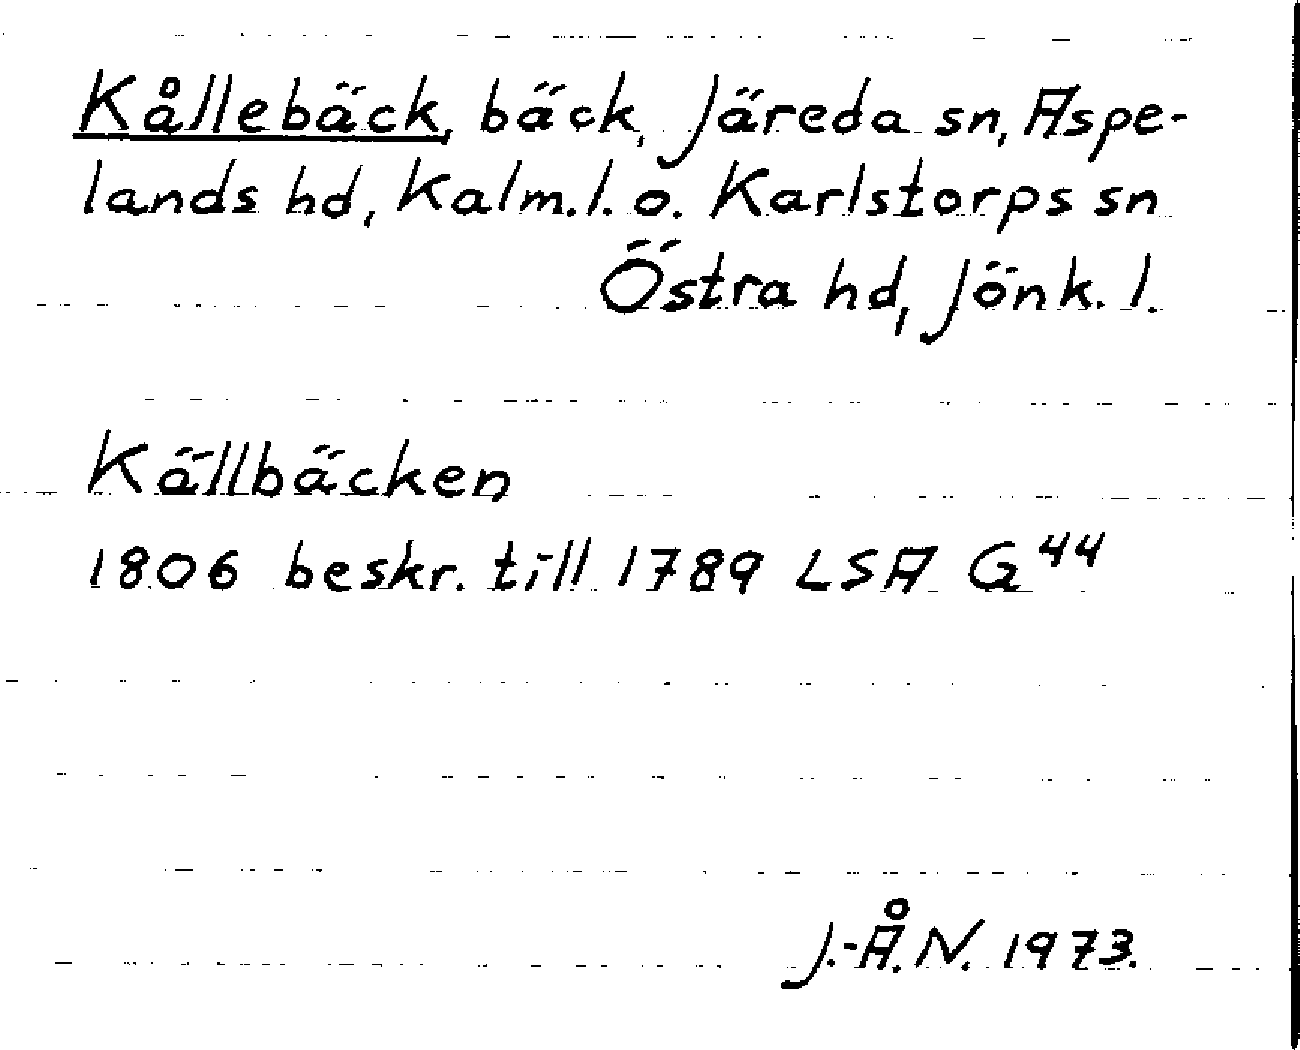 Kållebäck, bäck, Järeda sn, Aspe-
lands hd, Kalm.l. o. Karlstorps sn
Östra hd, Jönk. l.
Källbäcken
1806 beskr. till 1789 LSA G 44
J.-Å. N. 1973.